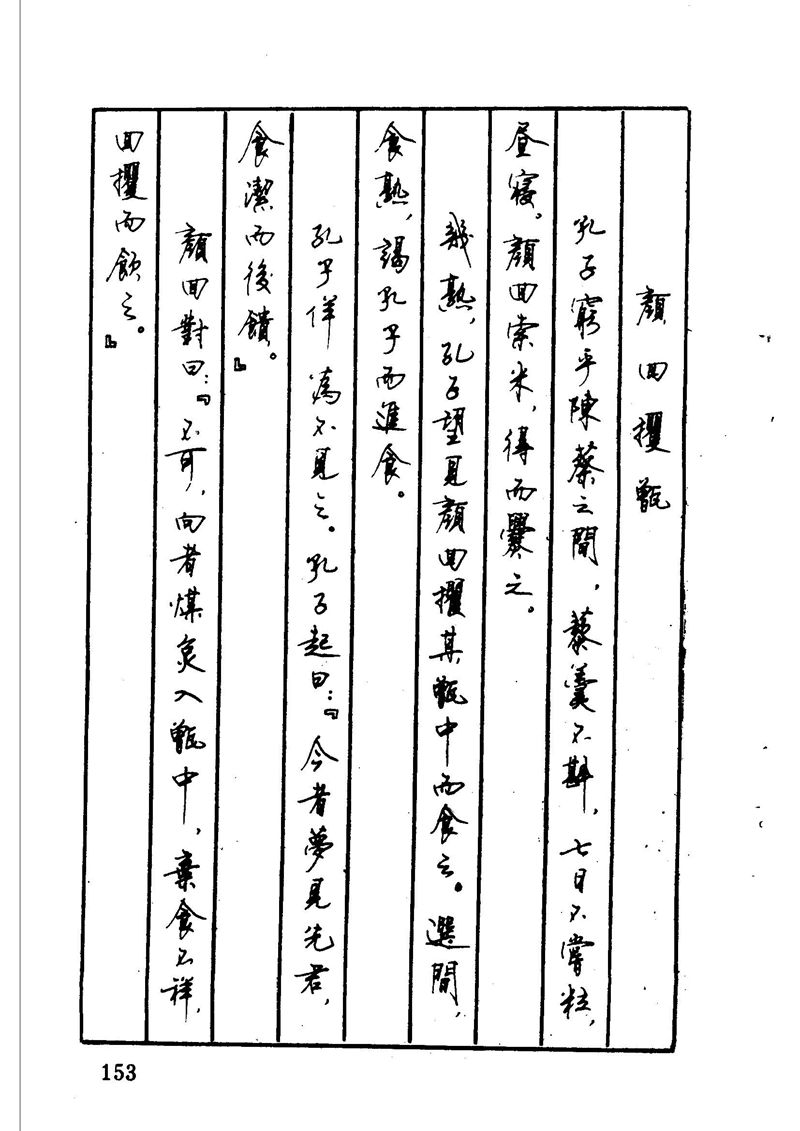 顏回攫甑
孔子窮乎陳蔡之間，藜羹不斟，七日不嘗粒，
昼寝。顏回索米，得而爨之。
幾熟，孔子望見顏回攫其甑中而食之。選間，
食熟，謁孔子而進食。
孔子佯為不見之。孔子起曰：『今者夢見先君，
食潔而後饋。』
顏回對曰：『不可，向者煤炱入甑中，棄食不祥，
回攫而飲之。』
153